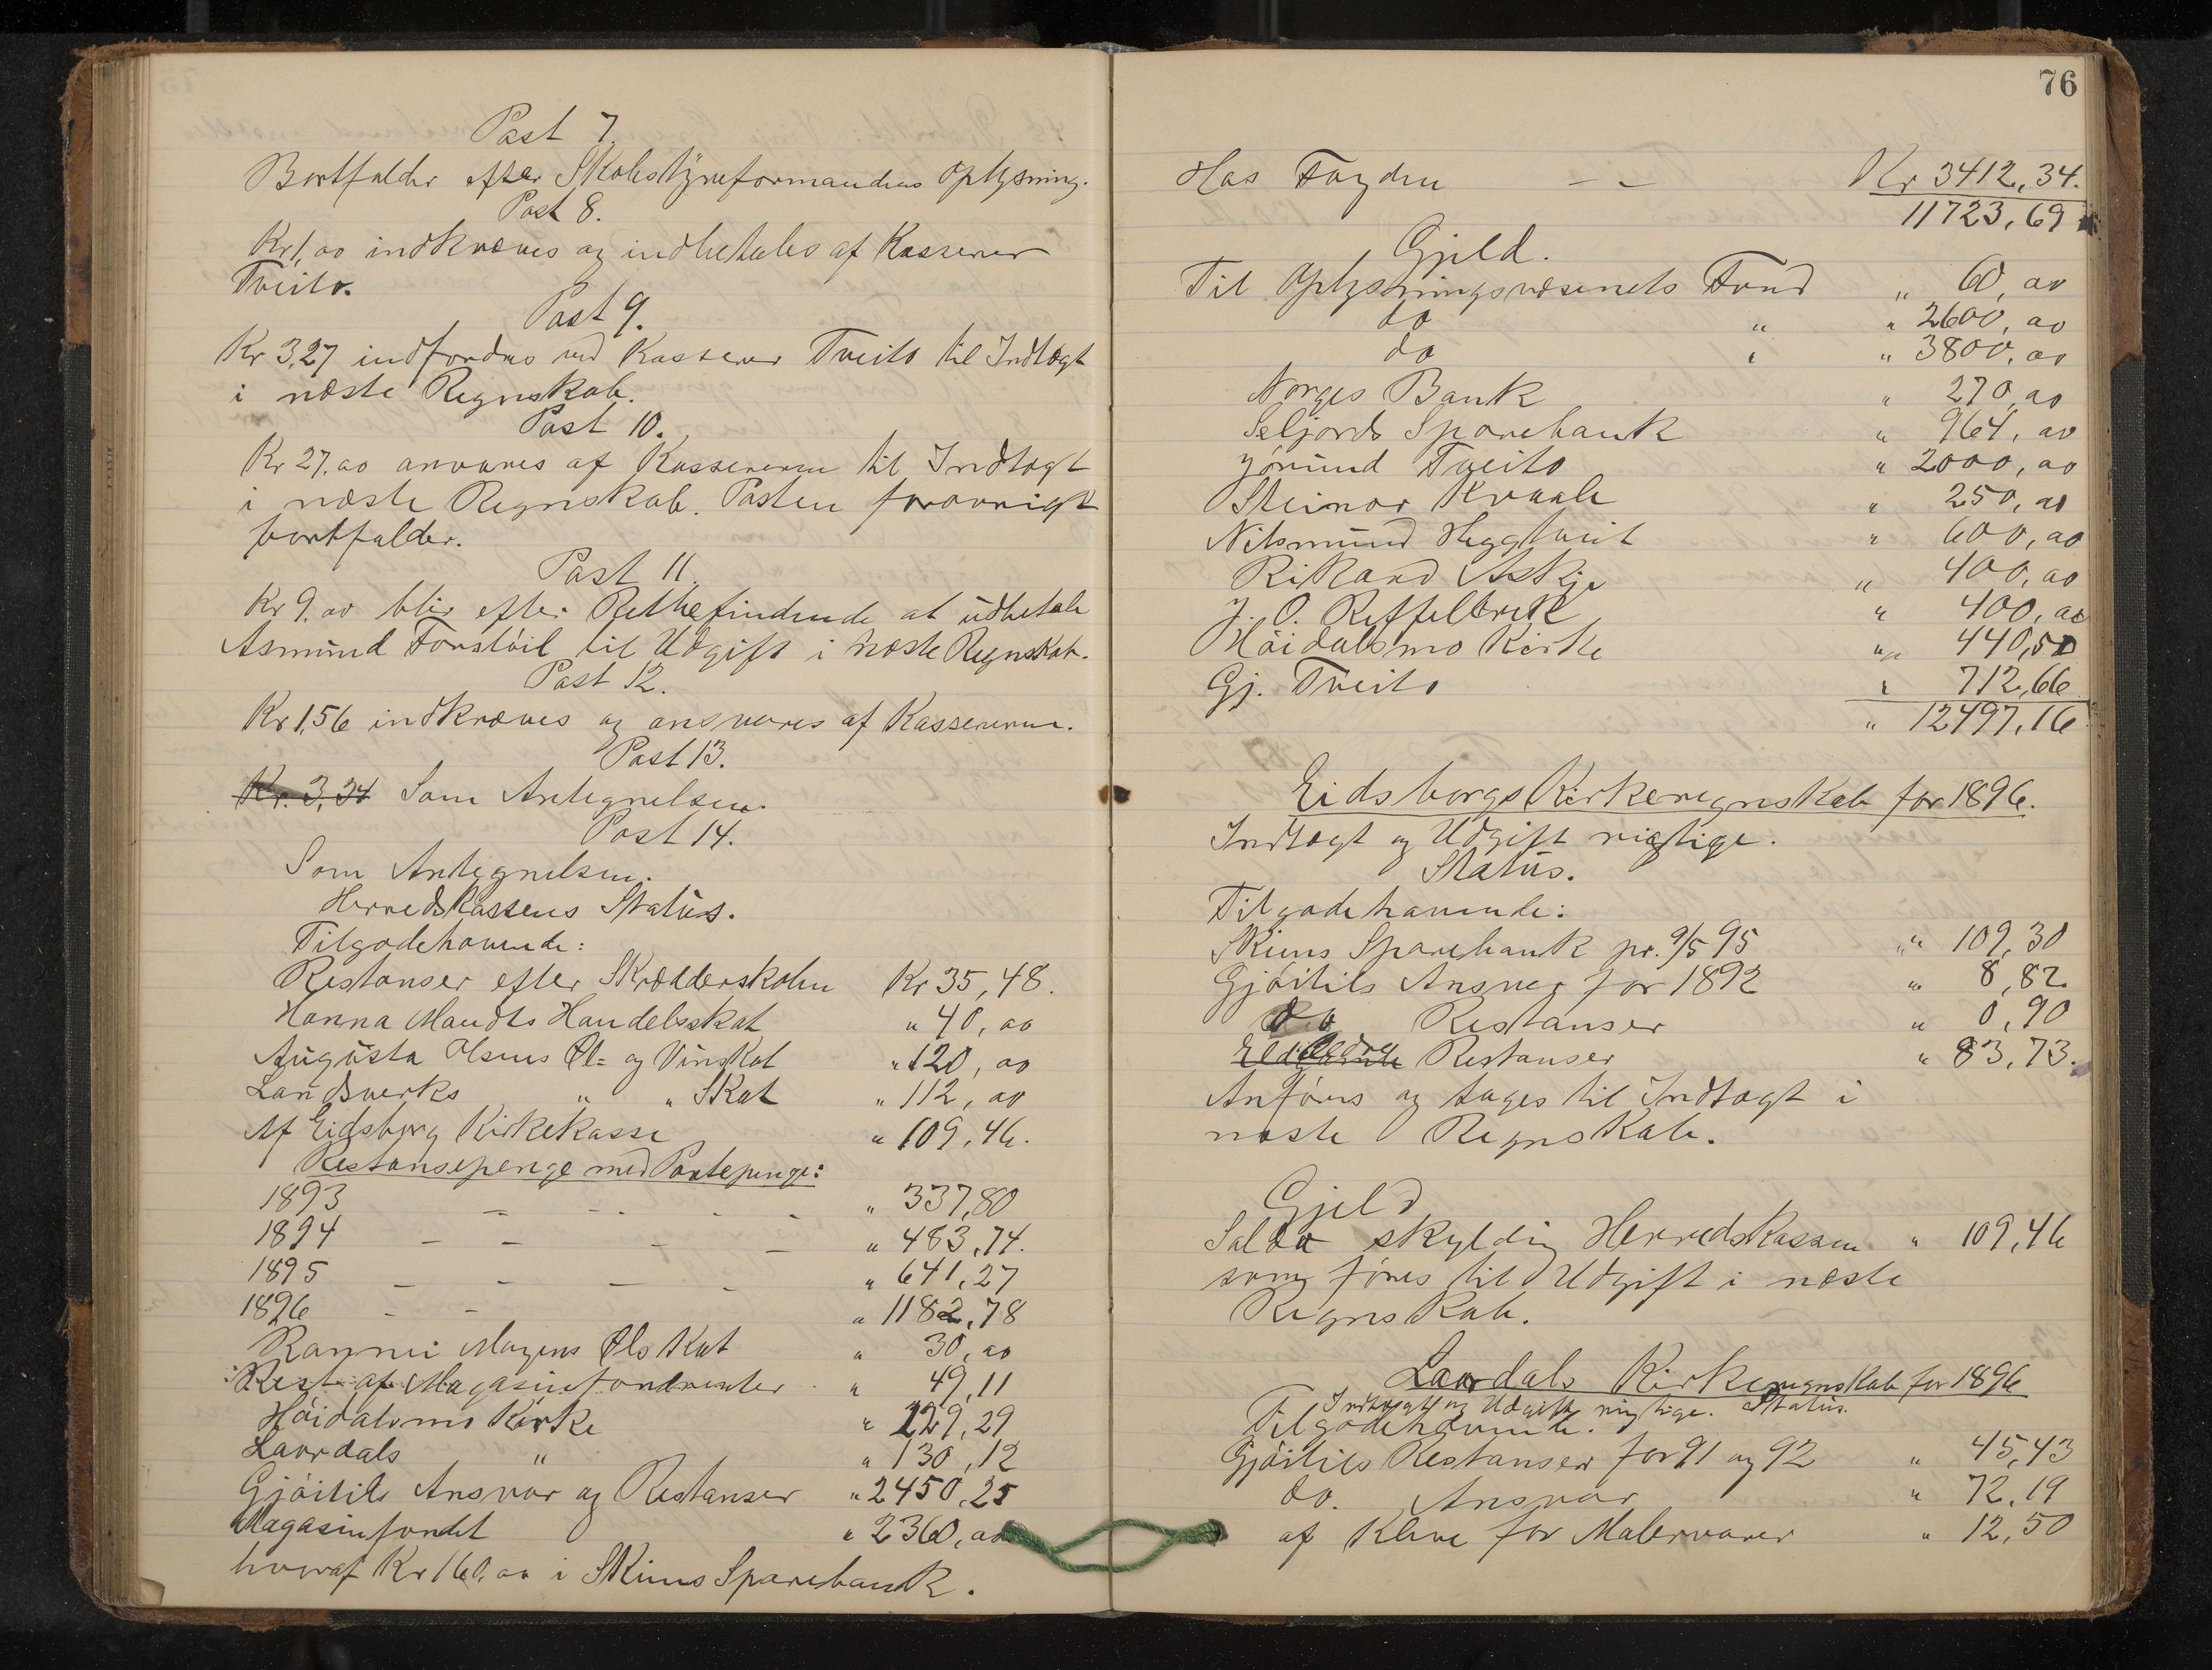 Post 7.
Bortfalder efter Skolestyreformandens Oplysning.
Post 8.
Kr 1,00 indkræves og indbetales af Kasserer
Tveito.
Post 9.
Kr 3,27 indfordres ved Kasserer Tveito til Indtægt
i næste Regnskab.
Post 10.
Kr 27,00 ansvares af Kassereren til Indtægt
i næste Regnskab. Posten forøvrigt
bortfalder.
Post 11.
Kr 9,00 blir efter Rettbefindende at udbetale
Asmund Torstøil til Udgift i næste Regnskab.
Post 12.
Kr 1,56 indkræves og ansvares af Kassereren.
Post 13.
Kr. 3,34 Som Antegnelsen.
Post 14.
Som Antegnelsen.
Herredskassens Status.
Tilgodehavende:
Restanser efter Skrædderskolen Kr 35,48.
Hanna Mandts Handelsskat " 40,00
Augusta Olsens Øl- og Vinskat " 120,00
Landsverks " " Skat " 112,00
Af Eidsborg Kirkekasse " 109,46.
Restansepenge med Pantepenge:
1893 - - - - " 337,80
1894 - - - - " 483,74.
1895 - - - - " 641,27
1896 - - " 1182,78
Mogens Ølskat " 30,00
Rest af Magasinfondrenter " 49,11
Høidalsmo Kirke " 129,29
Laurdals " " 130,12
Gjøitils Ansvar og Restanser " 2450,25
Magasinfondet " 2360,00
hvoraf Kr 160,00 i Skiens Sparebank.
76
Hos Fogden - - Kr 3412,34.
11723,69
Gjeld.
Til Oplysningsvæsenets Fond " 60,00
do " " 2600,00
do " " 3800,00
Norges Bank " 270,00
Seljords Sparebank " 964,00
Jørund Tveito " 2000,00
Steinar Kvaale " 250,00
Heggtveit " 600,00
Rikard Askje " 400,00
J. O. " 400,00
Høidalsmo Kirke " 440,50
Gj. Tveito " 712,66
" 12497,16
Eidsborgs Kirkeregnskab for 1896.
Indtægt og Udgift rigtige.
Status.
Tilgodehavende:
Skiens Sparebank pr. 9/5 95 " 109,30
Gjøitils Ansvar for 1892 " 8,82
do Restanser " 0,90
Eldre Restanser " 83,73.
Anføres og tages til Indtægt i
næste Regnskab.
Gjeld
Saldo skyldig Herredskassen " 109,46
som føres til Udgift i næste
Regnskab.
Laurdals Kirkeregnskab for 1896
Indtægt og Udgift rigtige. Status.
Tilgodehavende.
Gjøitils Restanser for 91 og 92 " 45,43
do. Ansvar " 72,19
af Kleve for Malervarer " 12,50